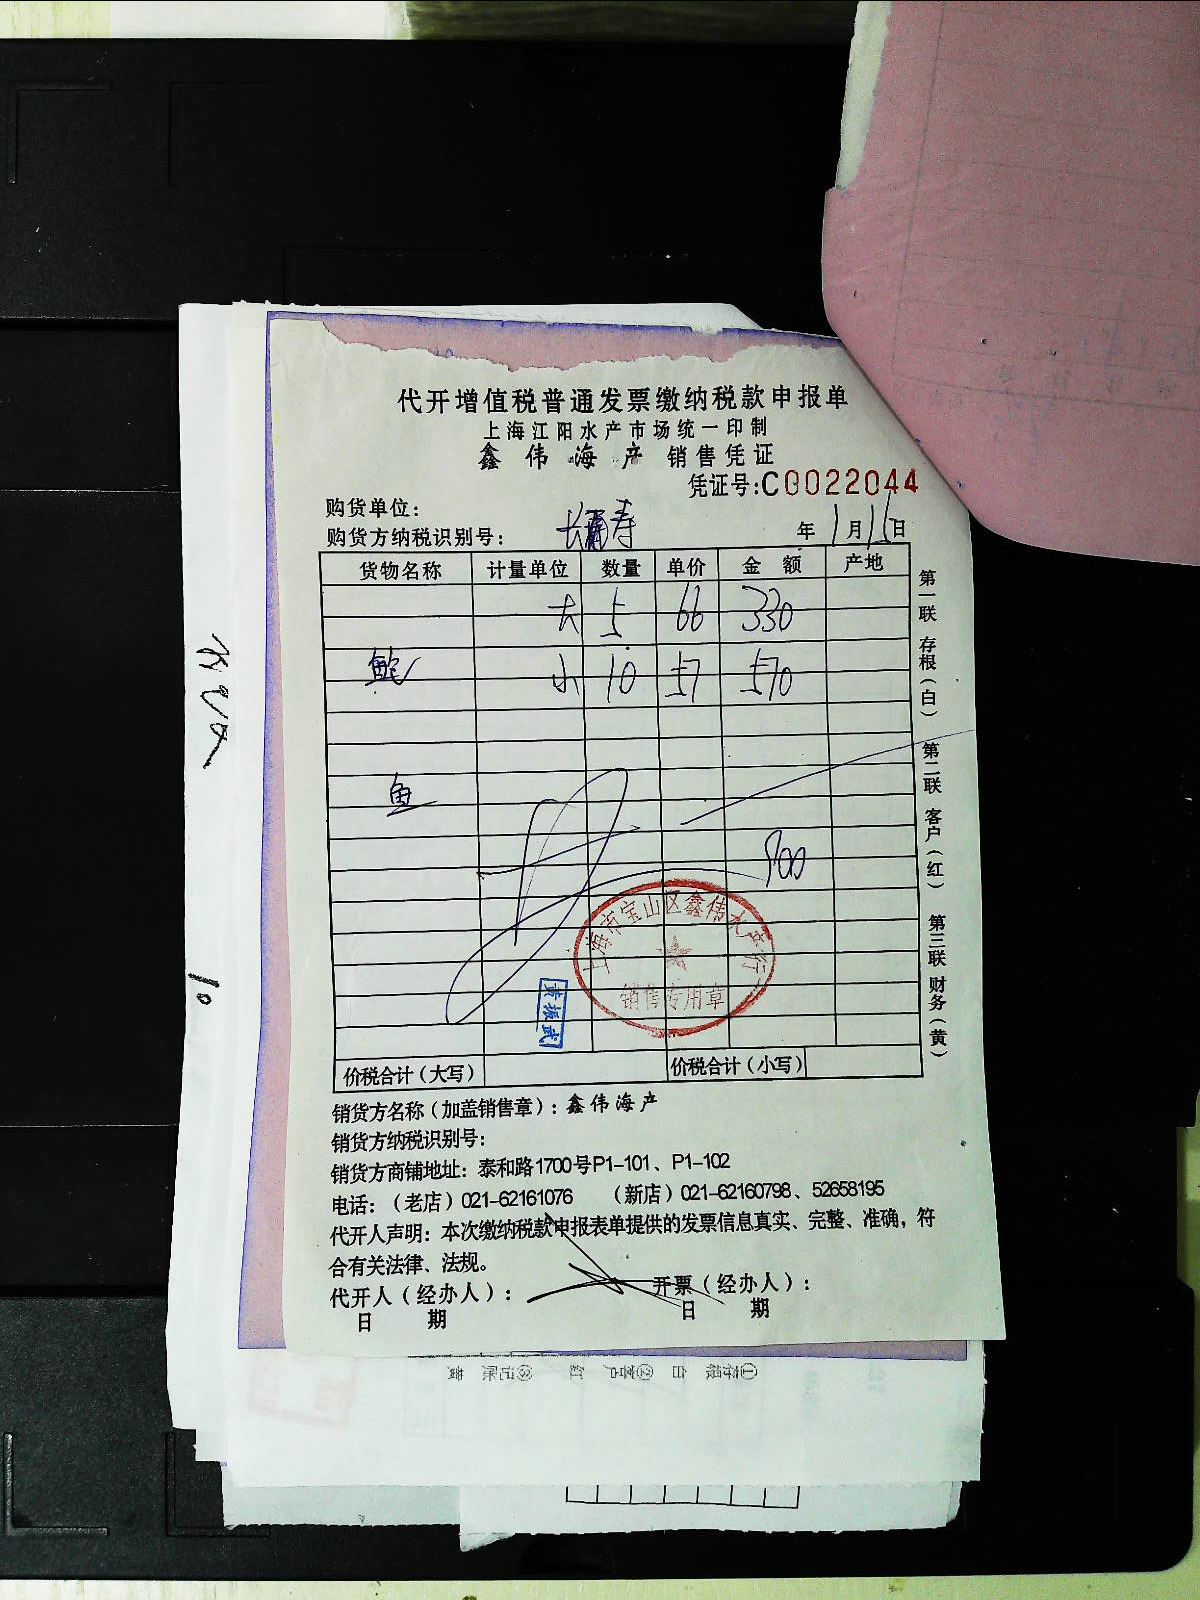 代开增值税普通发票缴纳税款申报单
上海江阳水产市场统一印制
鑫伟海产 销售凭证
凭证号:C0022044
购货单位:
购货方纳税识别号: 年1月15日
货物名称 计量单位 数量 单价 金额 产地
大 5 66 330
鲍 小 10 57 570
鱼
900
上海市宝山区鑫伟水产行
销售专用章
黄振武
价税合计(大写) 价税合计(小写)
销货方名称(加盖销售章): 鑫伟海产
销货方纳税识别号:
销货方商铺地址: 泰和路1700号P1-101、P1-102
电话:(老店)021-62161076 (新店)021-62160798、52658195
代开人声明: 本次缴纳税款申报表单提供的发票信息真实、完整、准确,符
合有关法律、法规。
代开人(经办人): 开票(经办人):
日 期 日 期
第一联 存根(白) 第二联 客户(红) 第三联 财务(黄)
10
①存根 白 ②客户 红 ③记账 黄